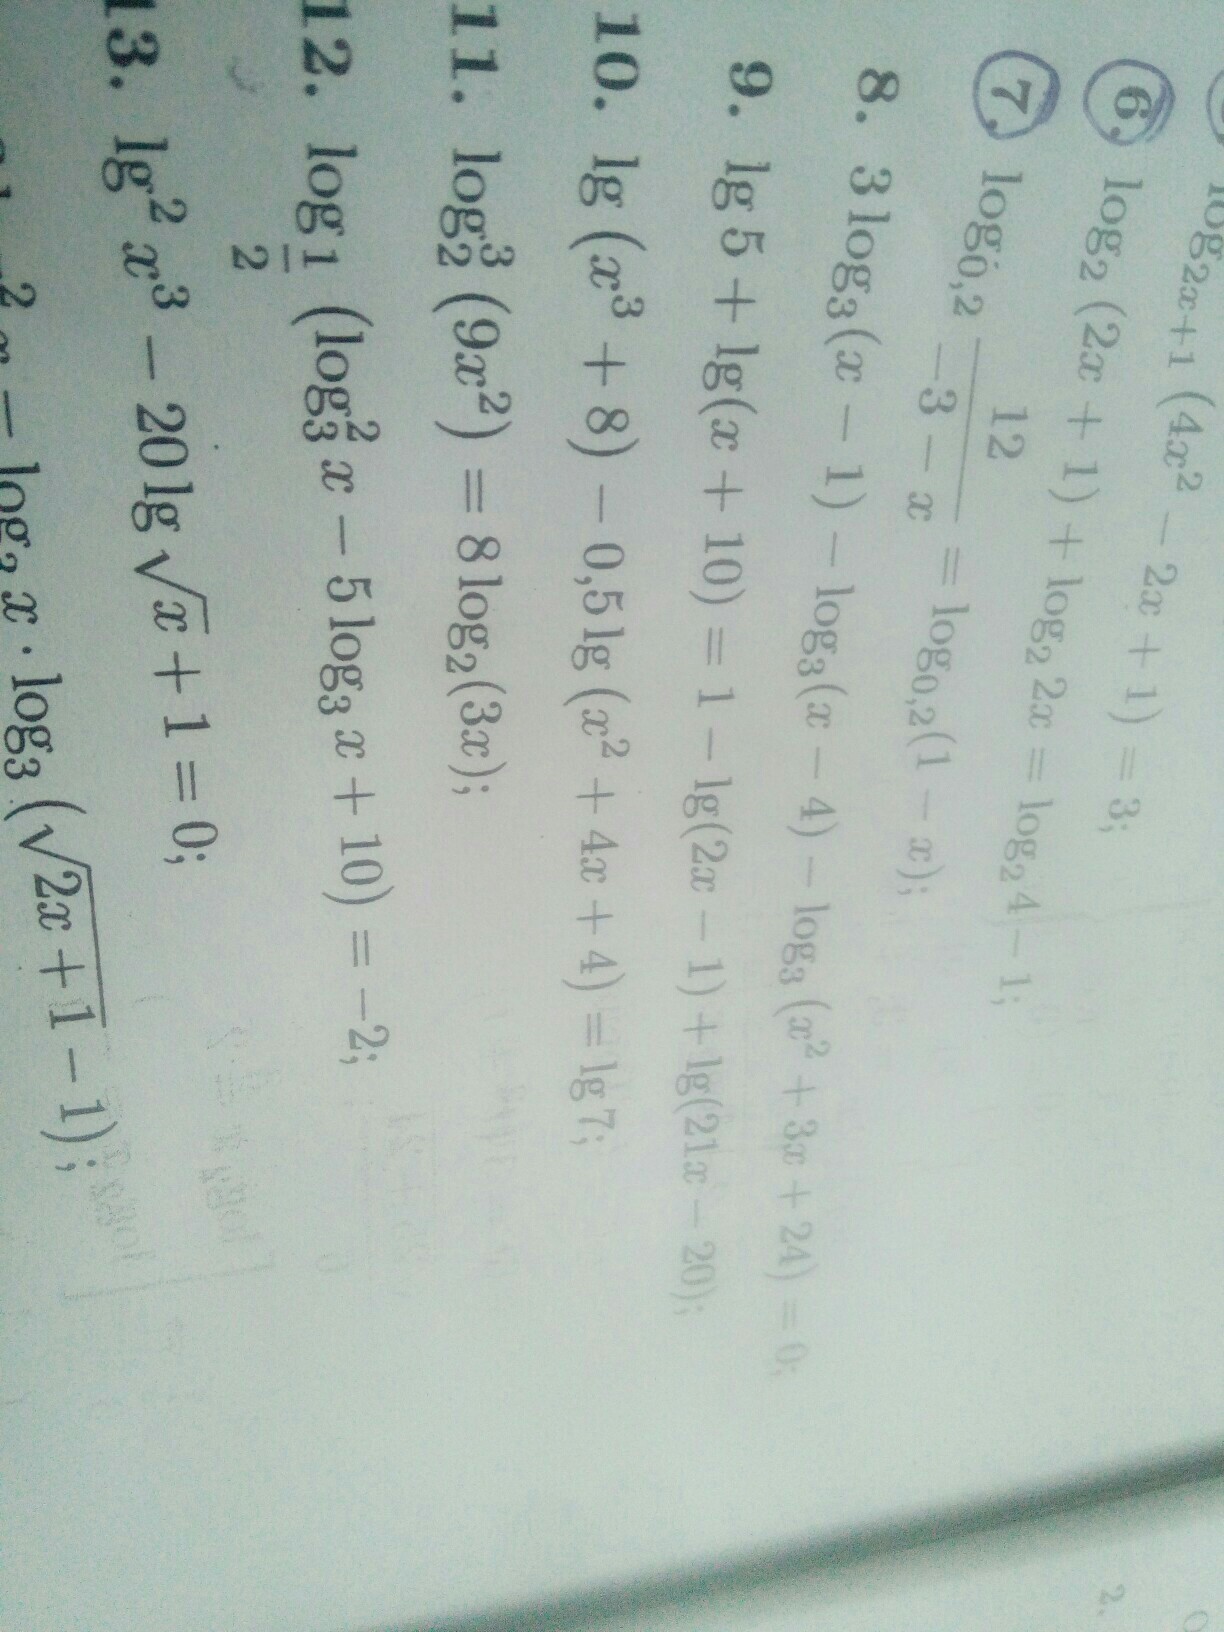 log₂ₓ₊₁ (4x² − 2x + 1) = 3;
6. log₂ (2x + 1) + log₂ 2x = log₂ 4 − 1;
7. log₀,₂ 12/(−3 − x) = log₀,₂(1 − x);
8. 3 log₃(x − 1) − log₃(x − 4) − log₃ (x² + 3x + 24) = 0;
9. lg 5 + lg(x + 10) = 1 − lg(2x − 1) + lg(21x − 20);
10. lg (x³ + 8) − 0,5 lg (x² + 4x + 4) = lg 7;
11. log₂³ (9x²) = 8 log₂(3x);
12. log_(1/2) (log₃² x − 5 log₃ x + 10) = −2;
13. lg² x³ − 20 lg √x + 1 = 0;
x = log₃ x · log₃ (√(2x + 1) − 1);
2.